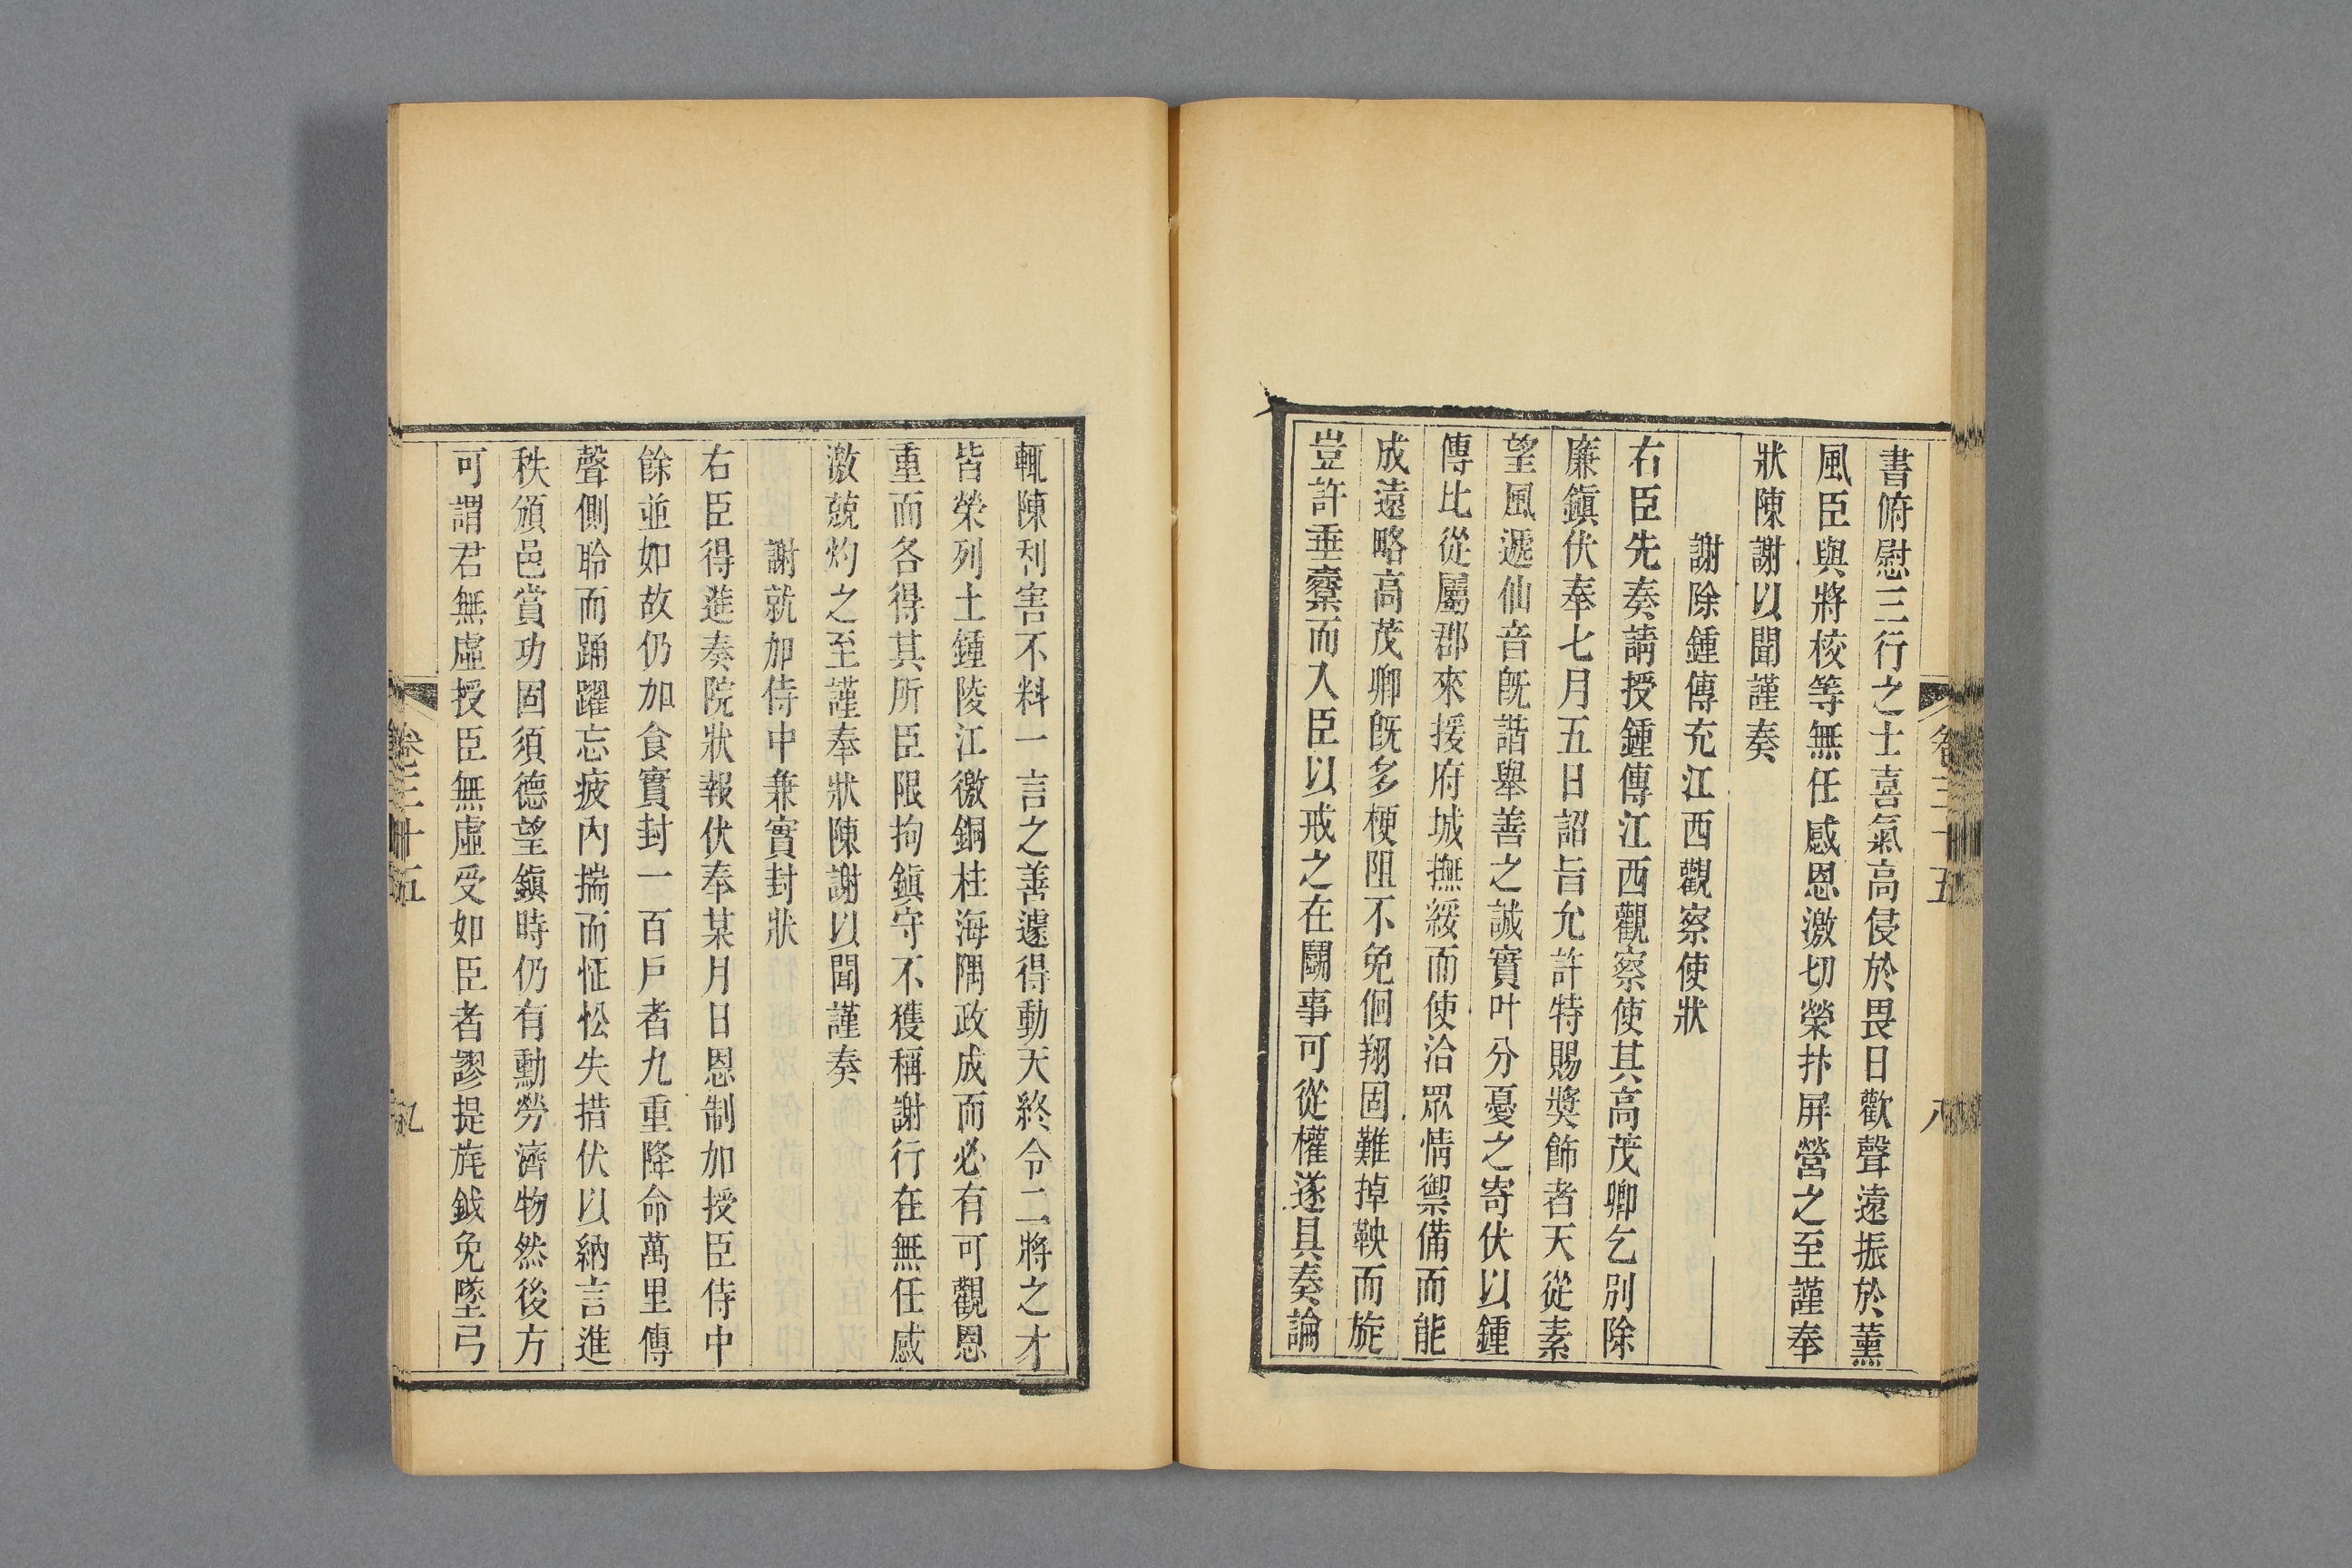 書俯慰三行之士喜氣高侵於畏日歡聲遠振於薰
風臣與將校等無任感恩激切榮抃屏營之至謹奉
狀陳謝以聞謹奏
謝除鍾傳充江西觀察使狀
右臣先奏請授鍾傳江西觀察使其高茂卿乞別除
廉鎭伏奉七月五日詔旨允許特賜奬飾者天從素
望風遞仙音旣諧舉善之誠實叶分憂之寄伏以鍾
傳比從屬郡來援府城撫綏而使洽眾情禦備而能
成遠略高茂卿旣多梗阻不免佪翔固難掉鞅而旋
豈許垂櫜而入臣以戒之在鬬事可從權遂具奏論
輒陳利害不料一言之善遽得動天終令二將之才
皆榮列土鍾陵江徼銅柱海隅政成而必有可觀恩
重而各得其所臣限拘鎭守不獲稱謝行在無任感
激兢灼之至謹奉狀陳謝以聞謹奏
謝就加侍中兼實封狀
右臣得進奏院狀報伏奉某月日恩制加授臣侍中
餘並如故仍加食實封一百戶者九重降命萬里傳
聲側聆而踊躍忘疲內揣而怔忪失措伏以納言進
秩頒邑賞功固須德望鎭時仍有勳勞濟物然後方
可謂君無虛授臣無虛受如臣者謬提旄鉞免墜弓
卷三十五
九